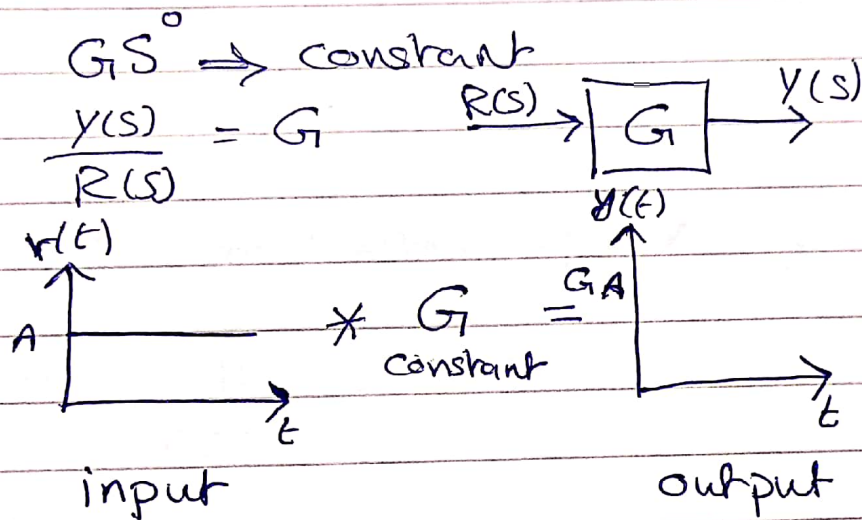 GS° ⇒ constant
Y(S)/R(S) = G R(S) G Y(S)
r(t) y(t)
A * G = GA
constant
t t
input output